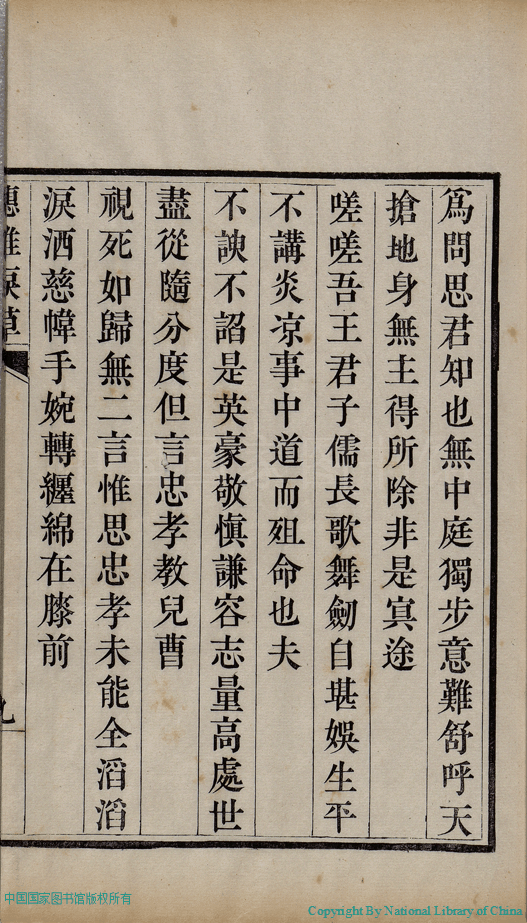 爲問思君知也無中庭獨步意難舒呼天
搶地身無主得所除非是冥途
嗟嗟吾王君子儒長歌舞劒自堪娛生平
不講炎凉事中道而殂命也夫
不諛不諂是英豪敬慎謙容志量高處世
盡從隨分度但言忠孝教兒曹
視死如歸無二言惟思忠孝未能全滔滔
淚洒慈幃手婉轉纏綿在膝前
中国国家图书馆版权所有
Copyright By National Library of China